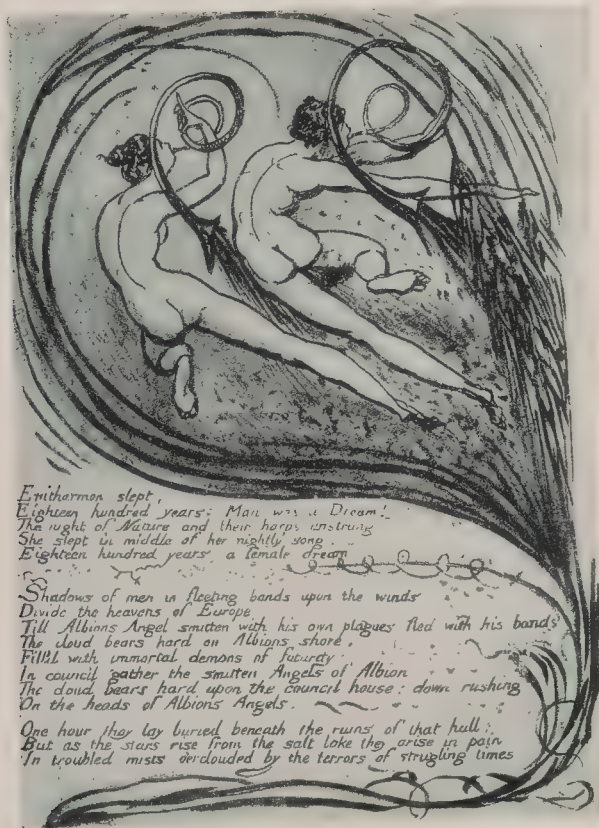 Enitharmon slept,
Eighteen hundred years: Man was a Dream!
The night of Nature and their harps unstrung
She slept in middle of her nightly song
Eighteen hundred years a female dream
Shadows of men in fleeting bands upon the winds
Divide the heavens of Europe
Till Albions Angel smitten with his own plagues fled with his bands
The cloud bears hard on Albions shore,
Filld with immortal demons of futurity
In council gather the smitten Angels of Albion
The cloud bears hard upon the council house: down rushing
On the heads of Albions Angels.
One hour they lay buried beneath the ruins of that hall;
But as the stars rise from the salt lake they arise in pain
In troubled mists oerclouded by the terrors of strugling times